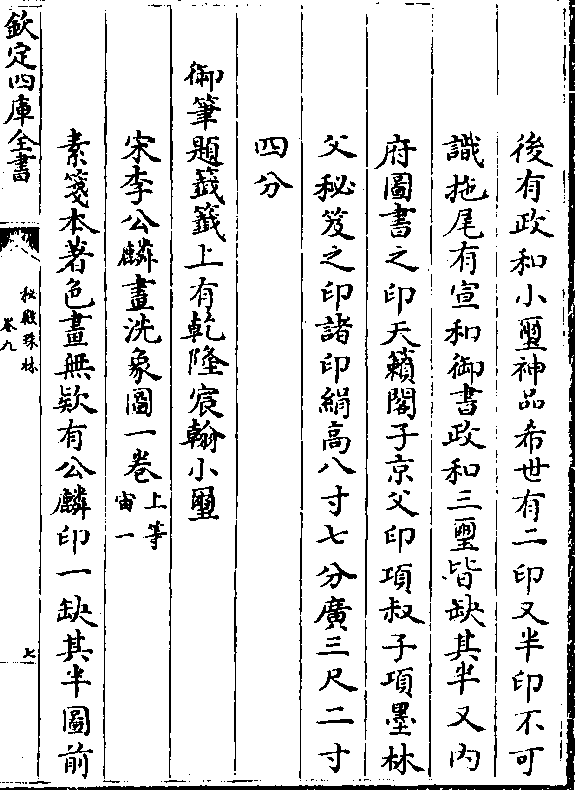 後有政和小璽神品希世有二印又半印不可
識拖尾有宣和御書政和三璽皆缺其半又内
府圖書之印天籟閣子京父印項叔子項墨林
父秘笈之印諸印絹高八寸七分廣三尺二寸
四分
御筆題籤籤上有乾隆宸翰小璽
宋李公麟畫洗象圖一卷上等宙一
素箋本著色畫無欵有公麟印一缺其半圖前
欽定四庫全書
秘殿珠林
卷九
七